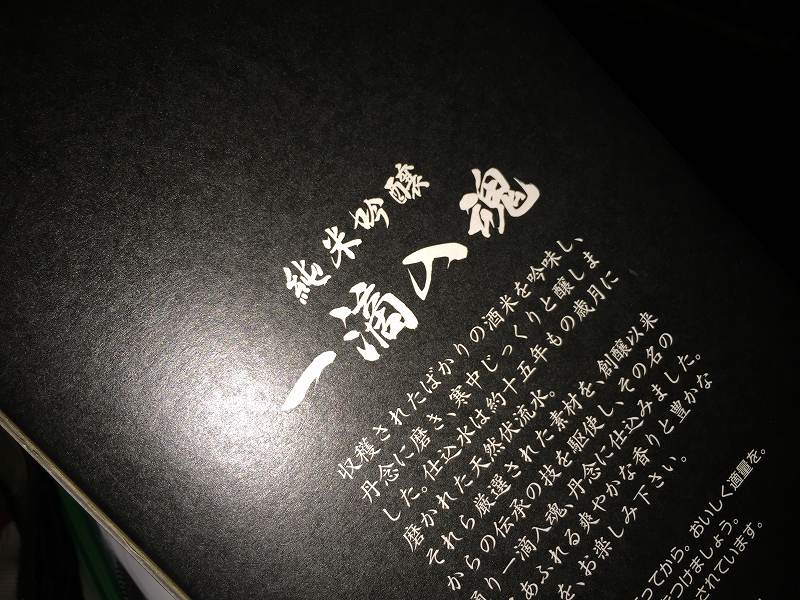 純米吟醸
一滴入魂
収穫されたばかりの酒米を吟味し、
丹念に磨き、寒中じっくりと醸しま
した。仕込水は約十五年もの歳月に
磨かれた天然伏流水。
それら厳選された素材を、創醸以来
からの伝承の技を駆使し、その名の
り一滴入魂、丹念に仕込みました。
あふれる爽やかな香りと豊かな
を、お楽しみ下さい。
ってから。おいしく適量を。
をつけましょう。
されています。